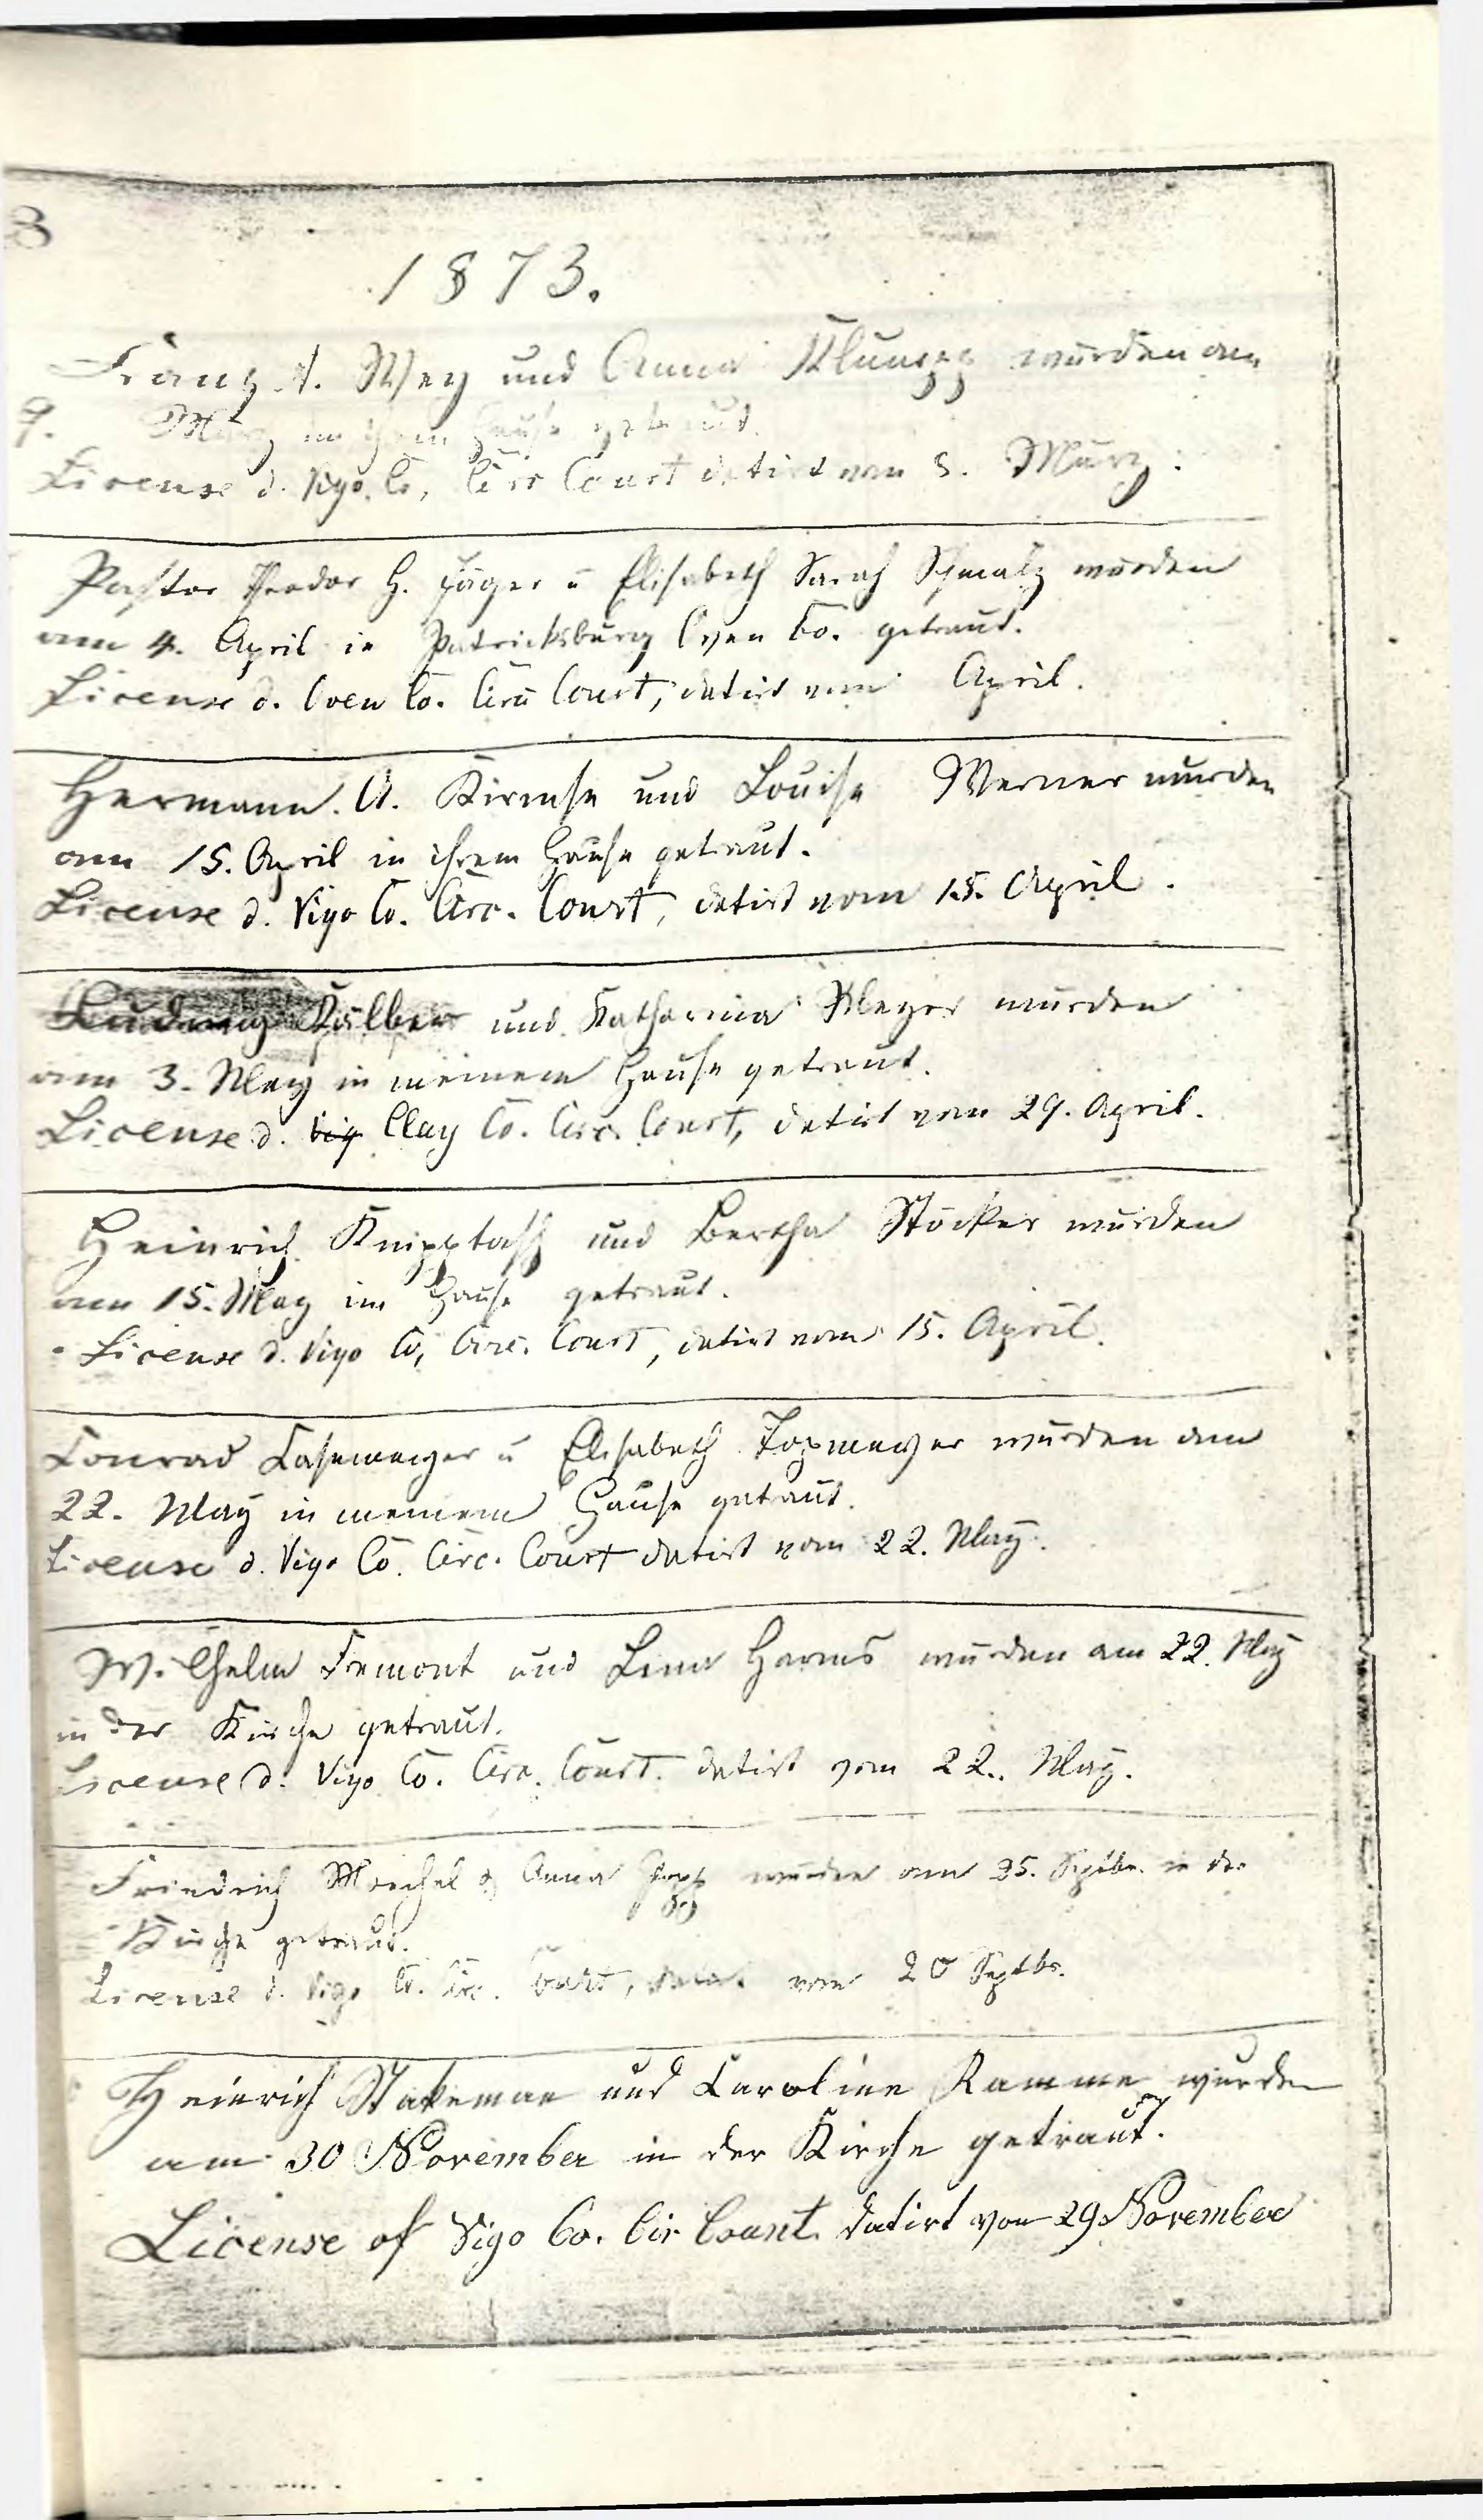 8
1873.
Franz A. Mey und Anna Klumpp wurden am
9. März in ihrem Hause getraut.
License d. Vigo Co. Circ Court datirt vom 8. März.
Pastor Theodor H. Jäger u Elisabeth Sarah Schmalz wurden
am 4. April in Patricksburg Owen Co. getraut.
License d. Owen Co. Circ Court, datirt vom April.
Hermann A. Kirmse und Louise Werner wurden
am 15. April in ihrem Hause getraut.
License d. Vigo Co. Circ. Court, datirt vom 15. April.
Ludwig und Katharina Meyer wurden
am 3. May in meinem Hause getraut.
License d. Vig Clay Co. Circ. Court, datirt vom 29. April.
Heinrich und Bertha Stöcker wurden
am 15. May im Hause getraut.
License d. Vigo Co, Circ. Court, datirt vom 15. April.
Conrad u Elisabeth Topmeyer wurden am
22. May in meinem Hause getraut.
License d. Vigo Co. Circ. Court datirt vom 22. May.
Wilhelm Fremont und Lena Harms wurden am 22. May
in der Kirche getraut.
License d. Vigo Co. Circ. Court. datirt vom 22. May.
Friedrich & Anna Popp wurden am 25. Septbr. in der
Kirche getraut.
License d. Vigo Co. Circ. Court, datirt vom 20 Septbr.
Heinrich Stakeman und Caroline Ramme wurden
am 30 November in der Kirche getraut.
License of Vigo Co. Cir Court. datirt von 29. November